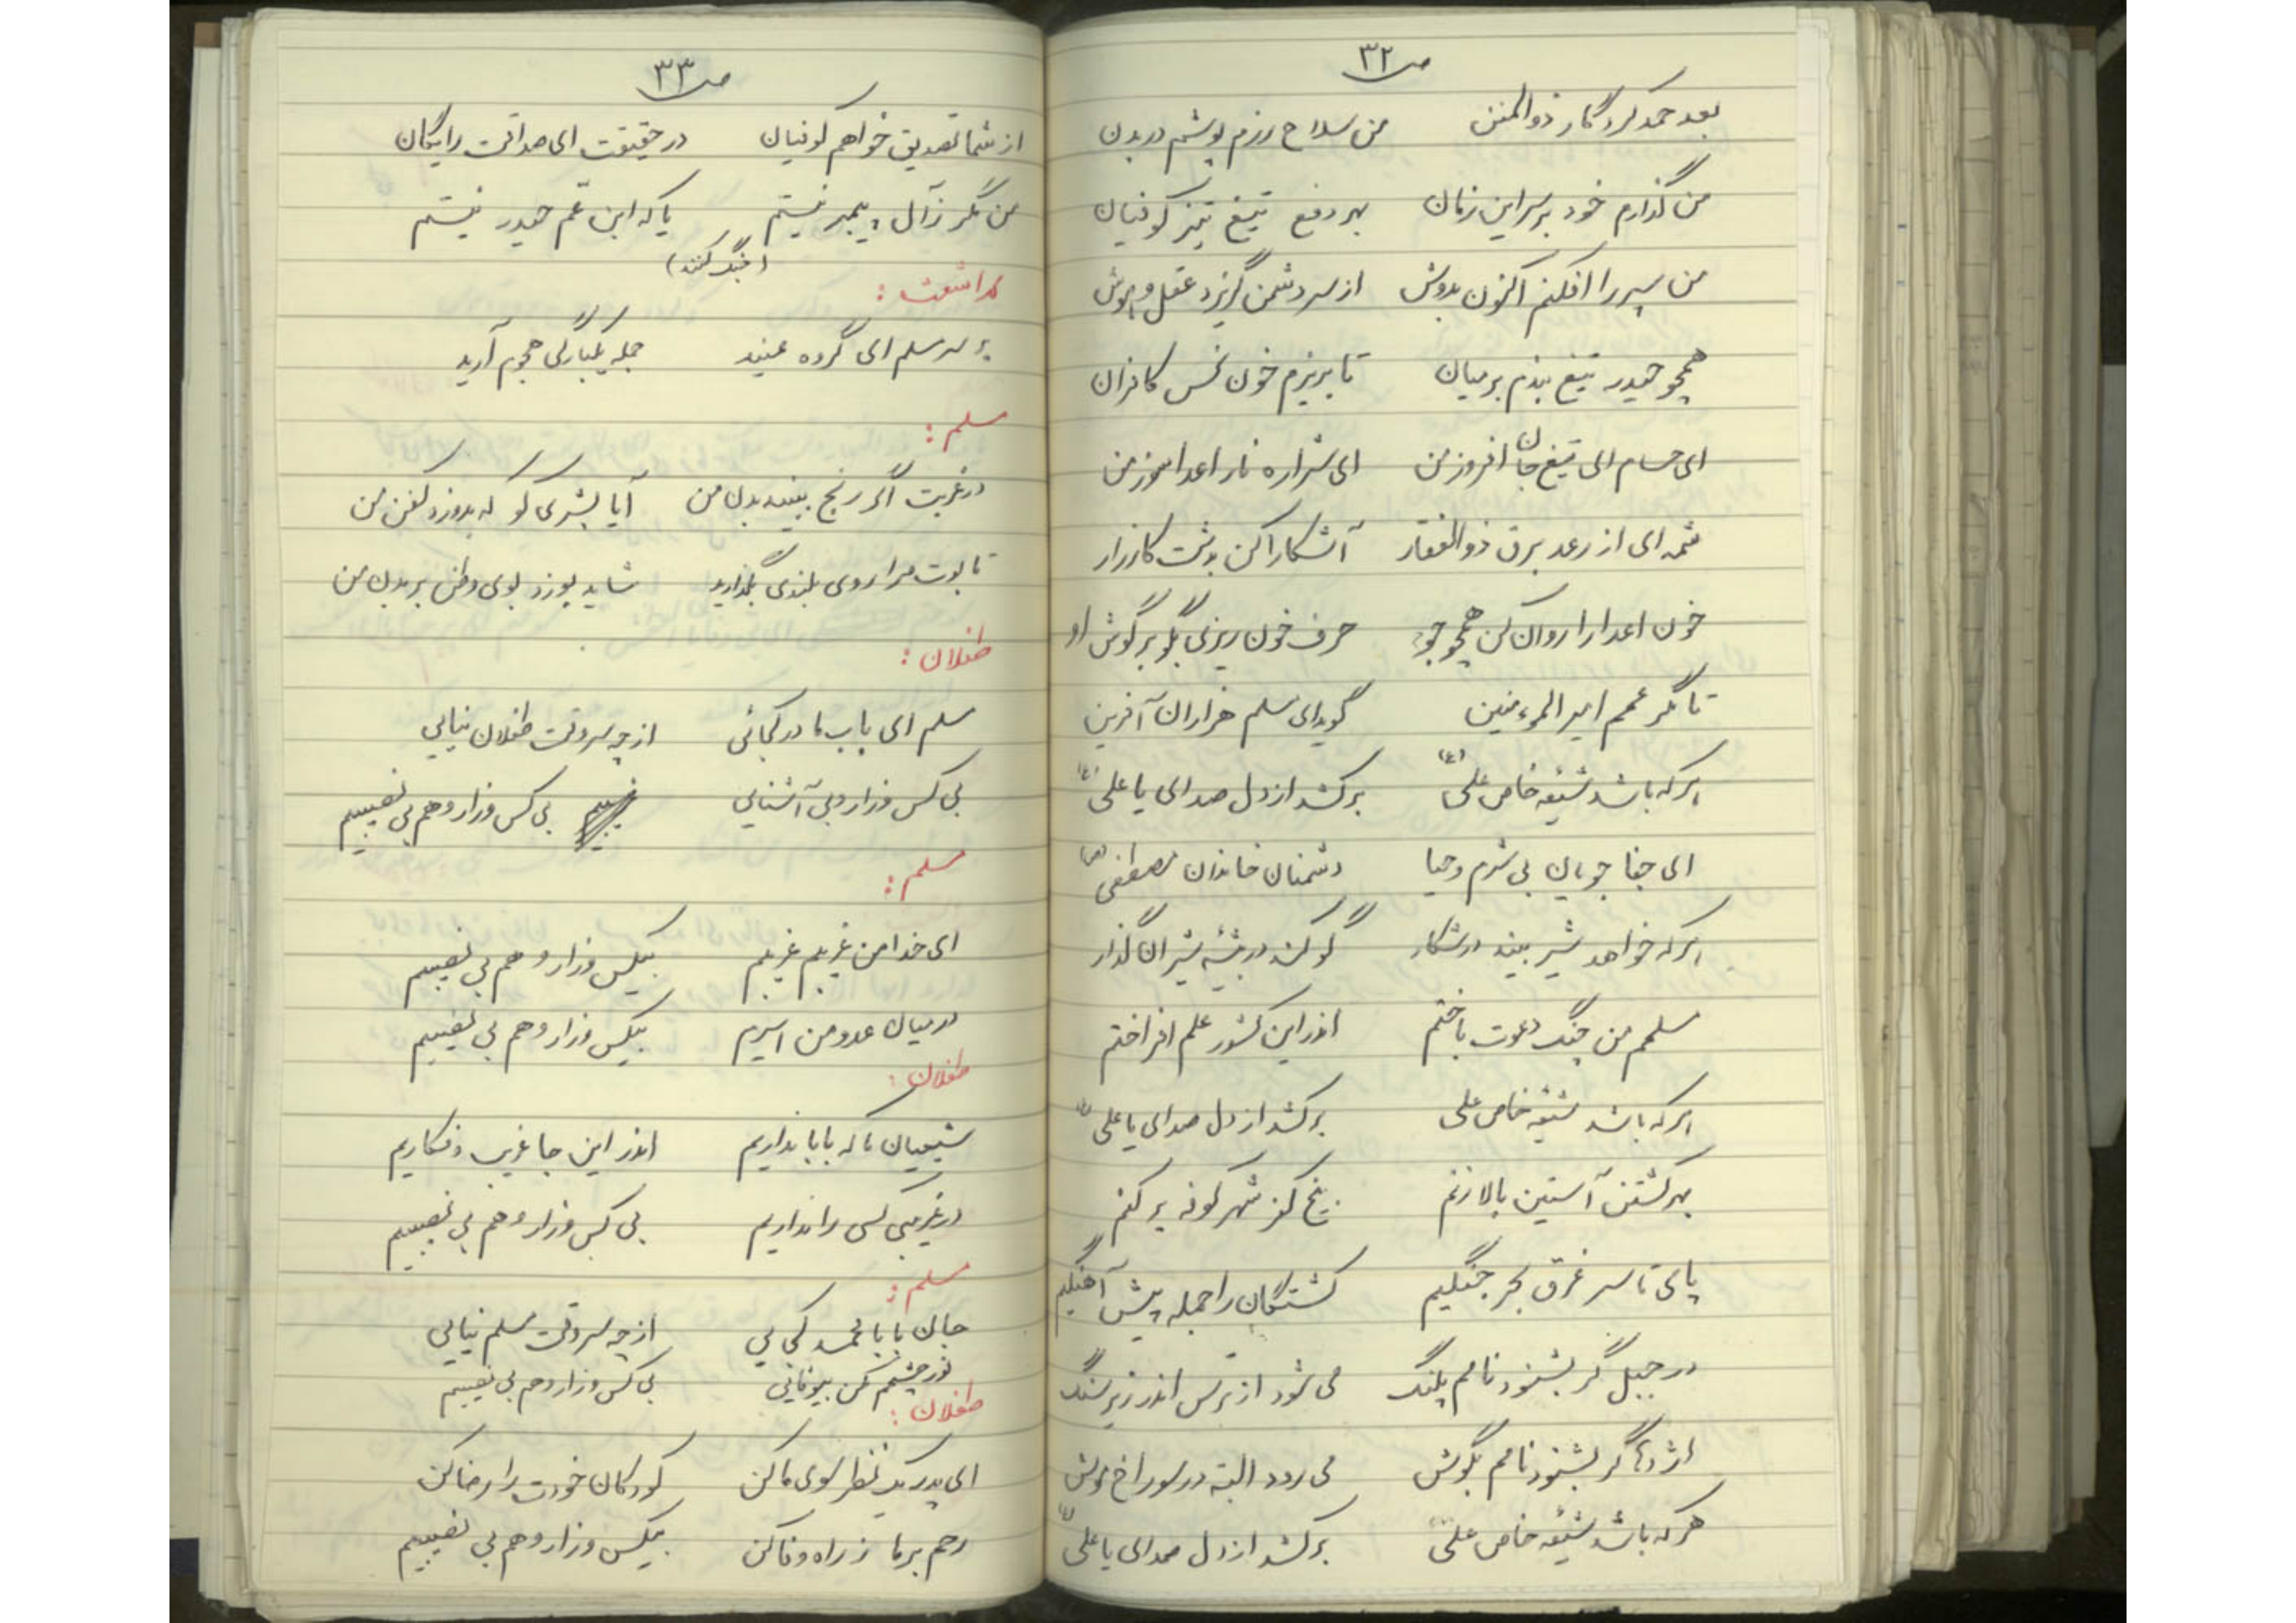 ص ۳۲
بعد حمد کردگار ذوالمنن من سلاح رزم پوشم در بدن
من گذارم خود بر سر این زمان بهر دفع تیغ تیز کوفیان
من سپر را افکنم اکنون بدوش از سر دشمن گریزد عقل و هوش
همچو حیدر تیغ بندم بر میان تا بریزم خون نحس کافران
ای حسام ای تیغ جان افروز من ای شراره نار اعدا سوز من
شمه ای از رعد برق ذوالفقار آشکارا کن بدشت کارزار
خون اعدا را روان کن همچو جو حرف خون ریزی بگو بر گوش او
تا مگر عمم امیرالمومنین گوید ای مسلم هزاران آفرین
هر که باشد شیعه خاص علی (ع) بر کشد از دل صدای یا علی (ع)
ای جفا جویان بی شرم و حیا دشمنان خاندان مصطفی (ص)
هر که خواهد شیر بیند در شکار گو کند در بیشه شیران گذار
مسلمم من جنگ دعوت باختم اندر این کشور علم افراختم
هر که باشد شیعه خاص علی بر کشد از دل صدای یا علی (ع)
بهر کشتن آستین بالا زنم بیخ کفر شهر کوفه بر کنم
پای تا سر غرق بحر جنگیم کشتگان را جمله پیش آهنگیم
در جبل گر بشنود نامم پلنگ می شود از ترس اندر زیر سنگ
اژدها گر بشنود نامم بگوش می رود البته در سوراخ موش
هر که باشد شیعه خاص علی بر کشد از دل صدای یا علی (ع)
ص ۳۳
از شما تصدیق خواهم کوفیان در حقیقت ای صداقت رایگان
من مگر ز آل پیمبر نیستم یا که ابن عم حیدر نیستم
(جنگ کنند)
بر سر مسلم ای گروه عنید جمله یکبارگی هجوم آرید
مسلم:
در غربت اگر رنج ببیند بدن من آیا بشری کو که بدوزد کفن من
تابوت مرا روی بلندی بگذارید شاید بوزد بوی وطن بر بدن من
طفلان:
مسلم ای باب ما در کجائی از چه سر وقت طفلان نیایی
بی کس و زار و بی آشنایی بی کس و زار و هم بی نصیبیم
مسلم:
ای خدا من غریبم غریبم بیکس و زار و هم بی نصیبم
در میان عدو من اسیرم بیکس و زار و هم بی نصیبم
طفلان:
شیعیان ما که بابا نداریم اندر این جا غریب و فکاریم
در غریبی کسی را نداریم بی کس و زار و هم بی نصیبیم
مسلم:
جان بابا محمد کجایی از چه سر وقت مسلم نیایی
نور چشمم مکن بیوفایی بی کس و زار و هم بی نصیبیم
طفلان:
ای پدر یک نظر سوی ما کن کودکان خودت را رضا کن
رحم بر ما ز راه وفا کن بیکس و زار و هم بی نصیبیم